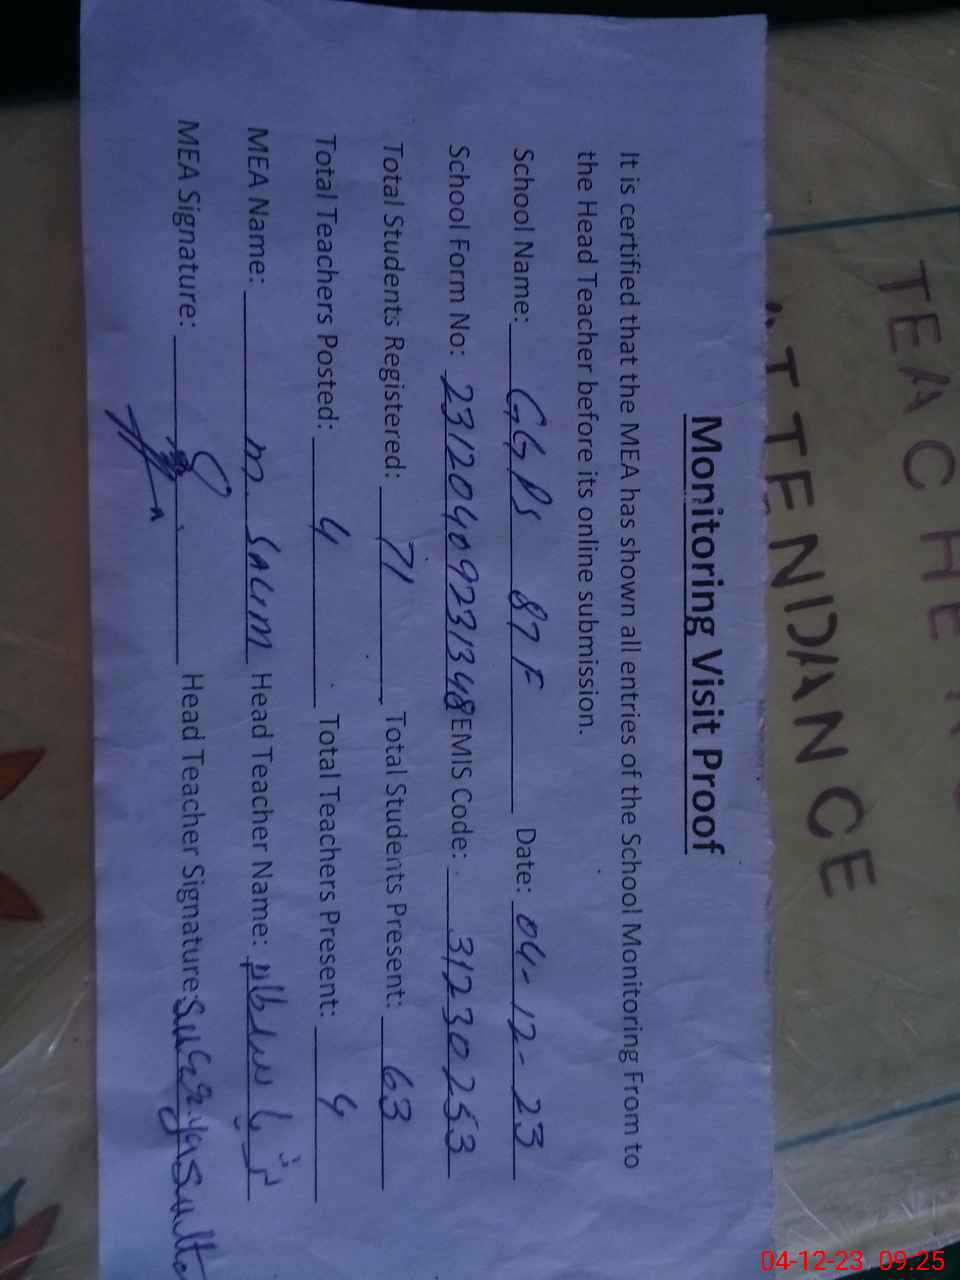 TEACHER
ATTENDANCE
Monitoring Visit Proof
It is certified that the MEA has shown all entries of the School Monitoring From to
the Head Teacher before its online submission.
School Name: GGPS 87 F Date: 04-12-23
School Form No: 23120409231348 EMIS Code: 31230253
Total Students Registered: 71 Total Students Present: 63
Total Teachers Posted: 4 Total Teachers Present: 4
MEA Name: M. SALIM Head Teacher Name:
MEA Signature: Head Teacher Signature:
04-12-23 09:25